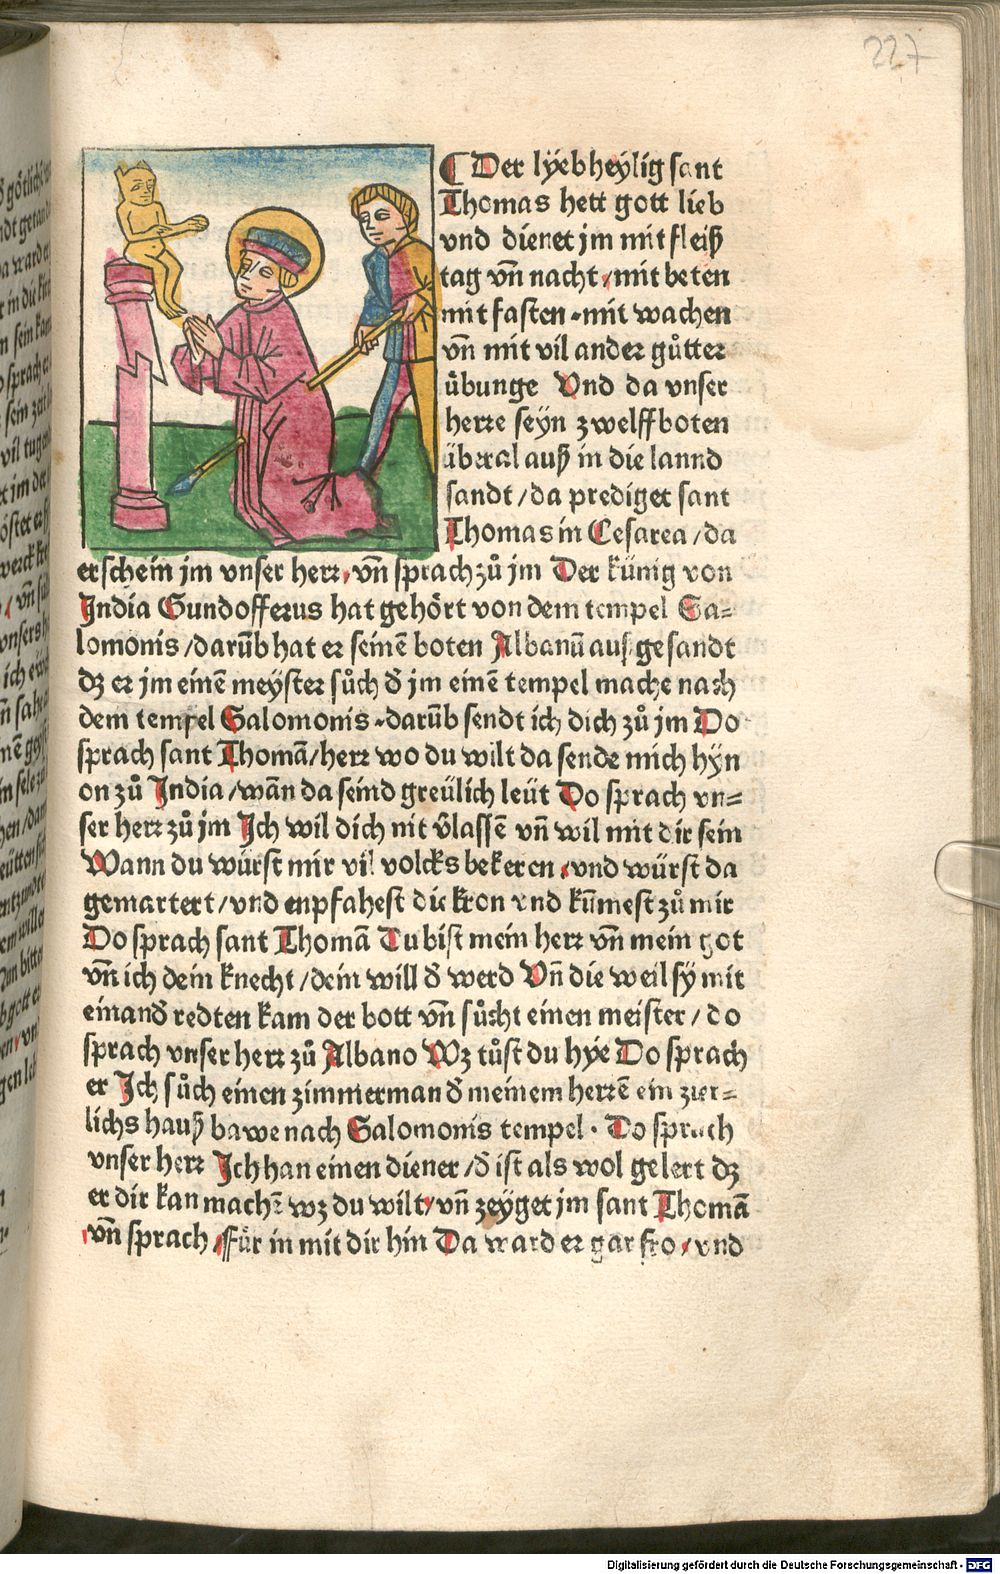 227
¶ Der lyebheylig sant
Thomas hett gott lieb
vnd dienet jm mit fleiß
tag vñ nacht / mit beten
mit fasten · mit wachen
vñ mit vil ander gůtter
übunge Vnd da vnser
herre seyn zwelffboten
überal auß in die lannd
sandt / da prediget sant
Thomas in Cesarea / da
erschein jm vnser herr, vñ sprach zů jm Der künig von
India Gundofferus hat gehört von dem tempel Sa=
lomonis / darūb hat er seinē boten Albanū ausgesandt
dz er jm einē meyster sůch d̄ jm einē tempel mache nach
dem tempel Salomonis · darūb sendt ich dich zů jm Do
sprach sant Thomā / herr wo du wilt da sende mich hyn
on zů India / wān da seind greülich leüt Do sprach vn=
ser herr zů jm Ich wil dich nit v̄lassē vñ wil mit dir sein
Wann du würst mir vil volcks bekeren / vnd würst da
gemartert / vnd enpfahest die kron vnd kūmest zů mir
Do sprach sant Thomā Du bist mein herr vñ mein got
vñ ich dein knecht / dein will d̄ werd Vñ die weil sy mit
einand̄ redten kam der bott vñ sůcht einen meister / do
sprach vnser herr zů Albano Wz tůst du hye Do sprach
er Ich sůch einen zimmerman d̄ meinem herrē ein zier=
lichs hauß bawe nach Salomonis tempel · Do sprach
vnser herr Ich han einen diener / d̄ ist als wol gelert dz
er dir kan machē wz du wilt / vñ zeyget jm sant Thomā
vñ sprach / Für in mit dir hin Da ward er gar fro / vnd
Digitalisierung gefördert durch die Deutsche Forschungsgemeinschaft - DFG